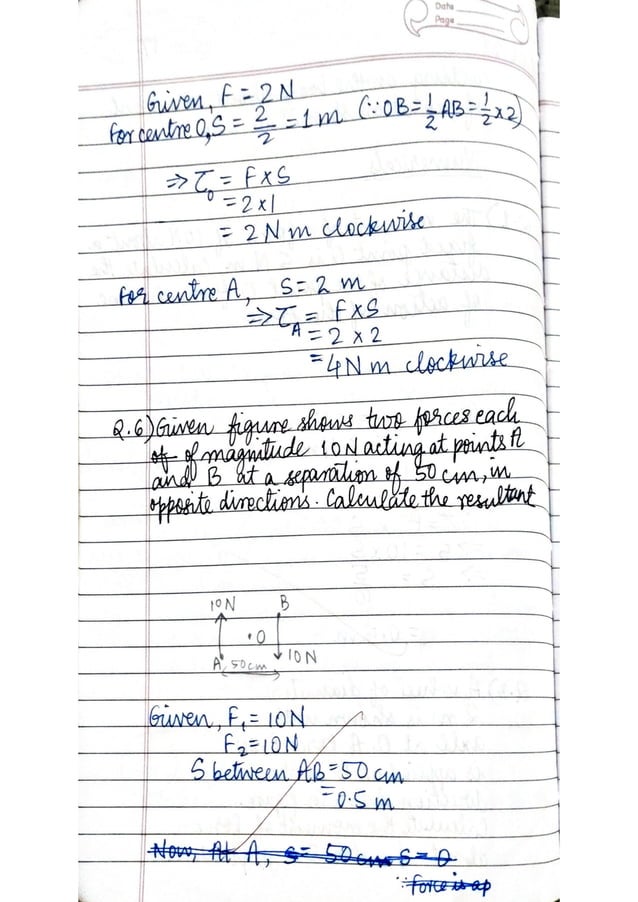 Date
Page
Given, F = 2 N
For centre O, S = 2/2 = 1 m (∵ OB = 1/2 AB = 1/2 × 2)
⇒ τ₀ = F × S
= 2 × 1
= 2 N m clockwise
For centre A, S = 2 m
⇒ τ_A = F × S
= 2 × 2
= 4 N m clockwise
Q.6) Given figure shows two forces each
of of magnitude 10 N acting at points A
and B at a separation of 50 cm, in
opposite directions. Calculate the resultant
10 N B
·O
A 50 cm 10 N
Given, F₁ = 10 N
F₂ = 10 N
S between AB = 50 cm
= 0.5 m
Now, At A, S = 50 cm S = 0
∵ force is ap